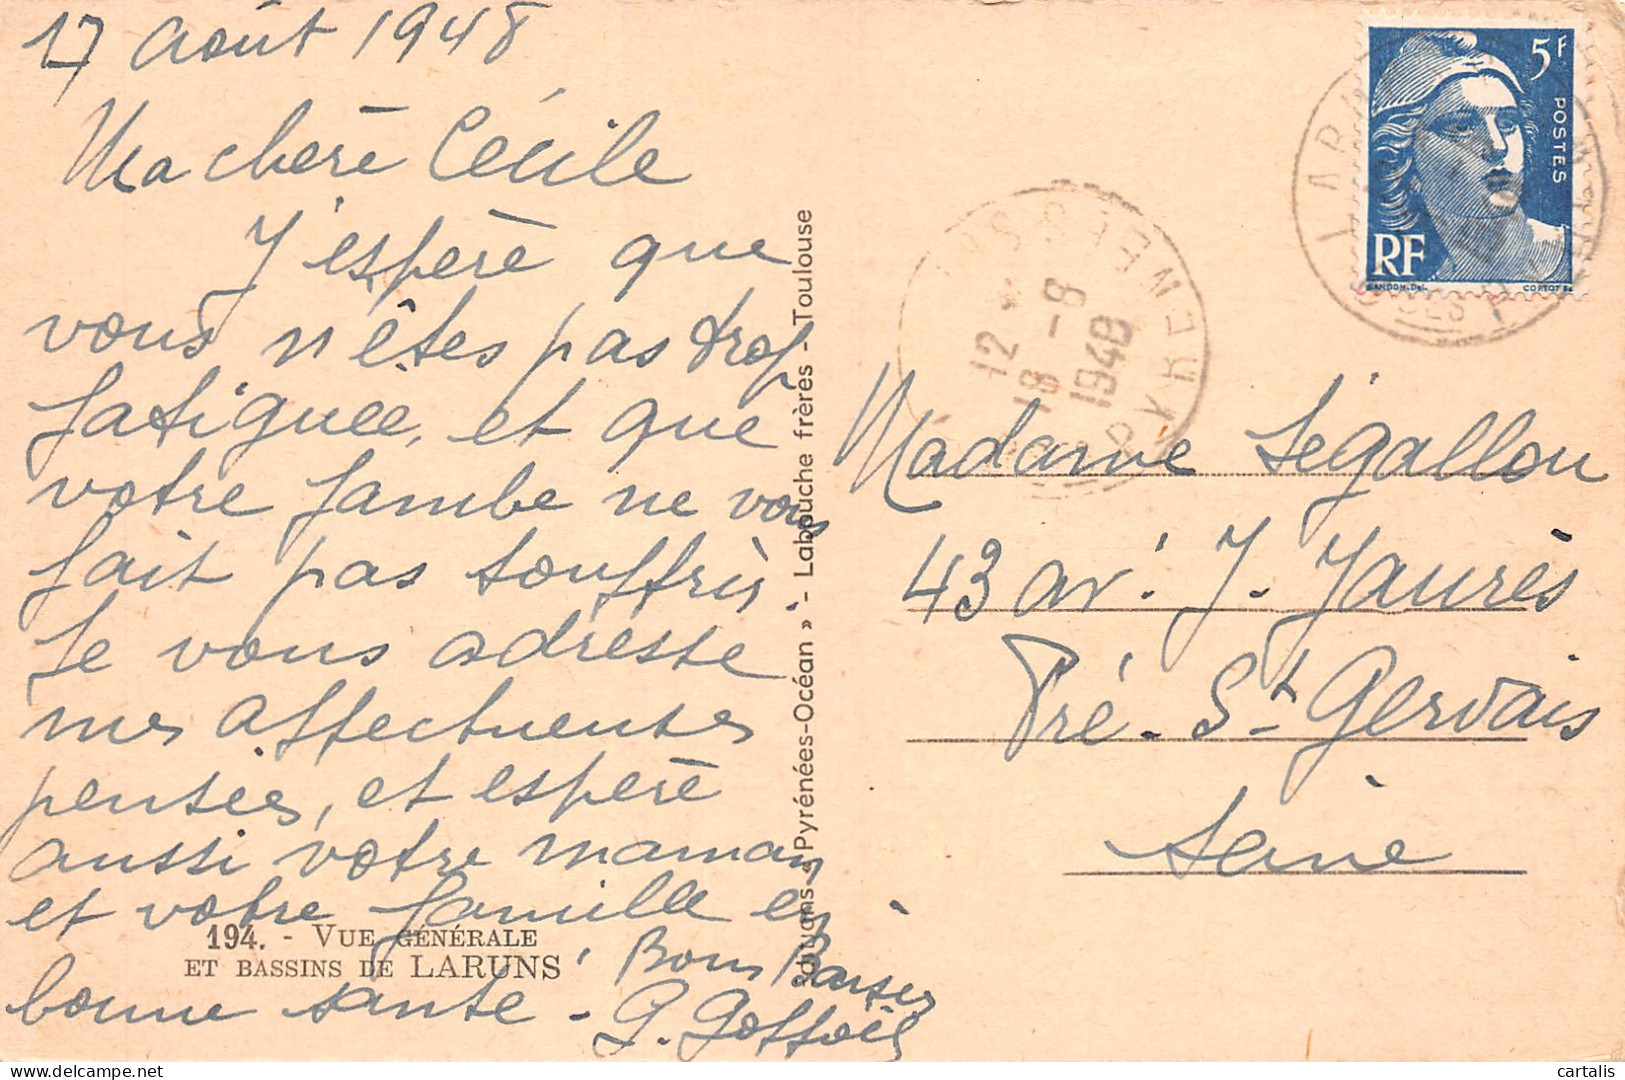 17 Août 1948
Ma chère Cécile
J'espère que
vous n'êtes pas trop
fatiguée, et que
votre jambe ne vous
fait pas souffrir.
Je vous adresse
mes affectueuses
pensées, et espère
aussi votre maman
et votre famille en
bonne santé -
Bons Baisers
194. - VUE GÉNÉRALE
ET BASSINS DE LARUNS
Pyrénées-Océan » - Labouche frères - Toulouse
5F
POSTES
RF
GANDON.Del.
CORTOT Sc
12 *
18 -8
1948
Madame Ségallou
43 av. J. Jaurès
Pré-St Gervais
Seine
delcampe.net
cartalis